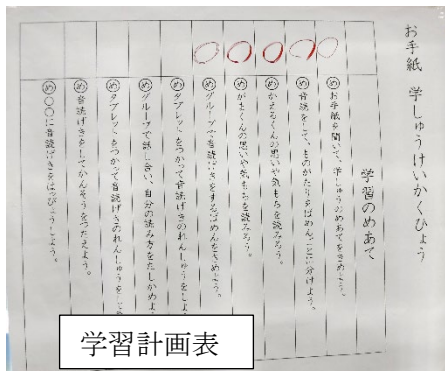 お手紙 学しゅうけいかくひょう
学習のめあて
め お手紙を聞いて、学しゅうのめあてをきめよう。
め 音読をして、ものがたりをばめんごとに分けよう。
め かえるくんの思いや気もちを読みろう。
め がまくんの思いや気もちを読みろう。
め グループで音読げきをするばめんをきめよう。
め タブレットをつかって音読げきのれんしゅうをしよ
め グループで話し合い、自分の読み方をたしかめよ
め タブレットをつかって音読げきのれんしゅうをして
め 音読げきをしてかんそうをつたえよう。
め 〇〇に音読げきをはっぴょうしよう。
学習計画表